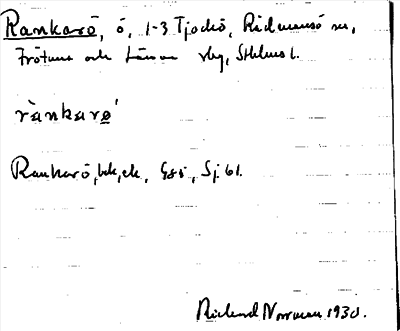 Rankarö, ö, 1-3 Tjockö, Rådmansö sn,
Frötuna och Länna slg, Sthlms l.
rànkarø̀
Rankarö, bek, ek, GSÖ, Sj. 61.
Rickard Norman 1930.